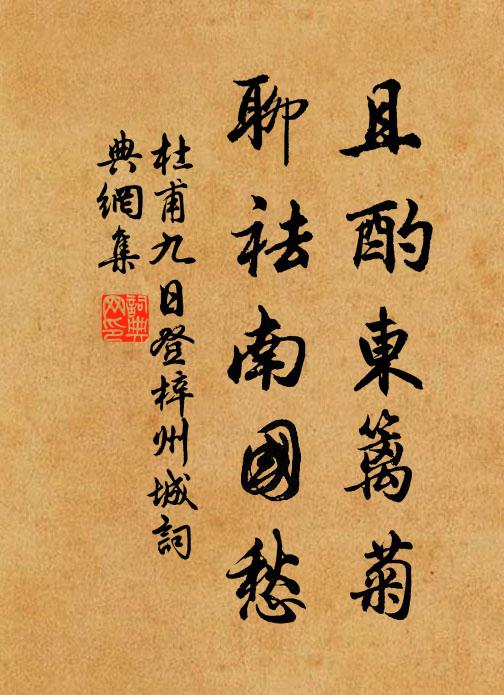 且酌東籬菊
聊祛南國愁
杜甫九日登梓州城詞
典網集
詞典網印